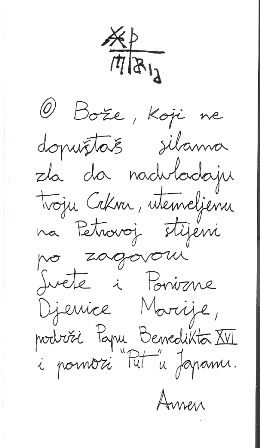 O Bože, koji ne
dopuštaš silama
zla da nadvladaju
tvoju Crkvu, utemeljenu
na Petrovoj stijeni
po zagovoru
Svete i Ponizne
Djevice Marije,
podrži Papu Benedikta XVI
i pomozi "Put" u Japanu.
Amen